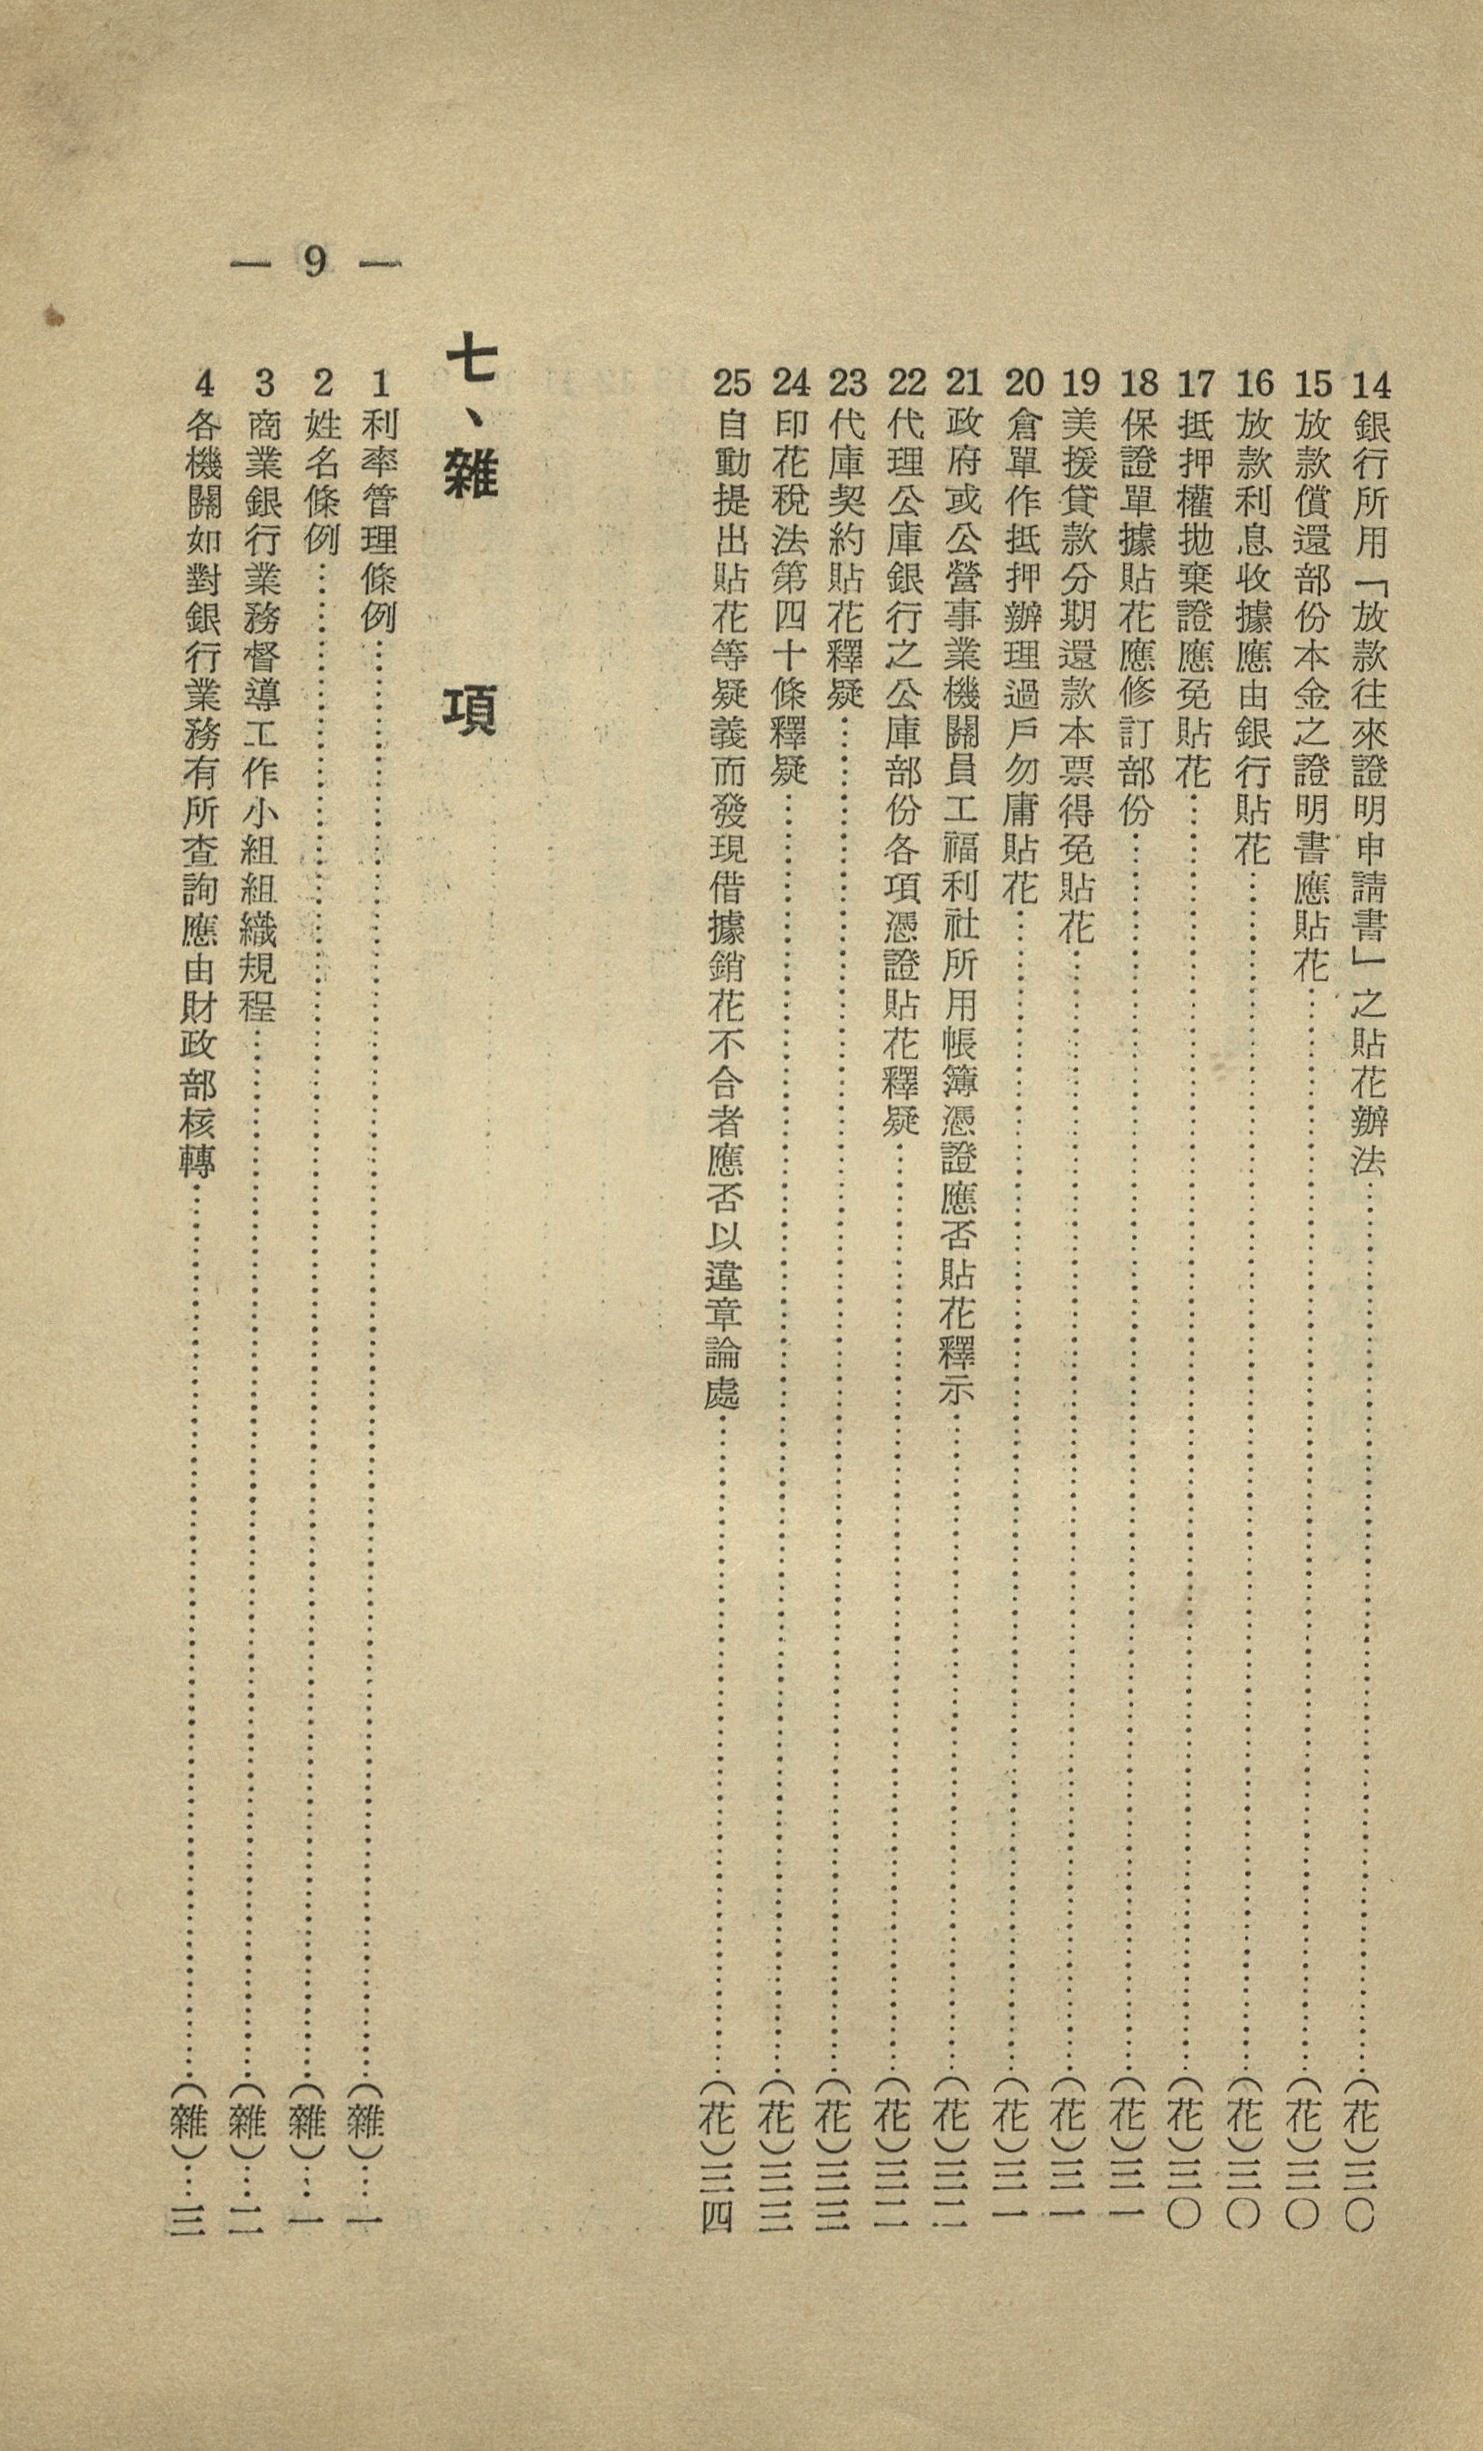 14銀行所用「放款往來證明申請書」之貼花辦法……（花）三〇
15放款償還部份本金之證明書應貼花……（花）三〇
16放款利息收據應由銀行貼花……（花）三〇
17抵押權拋棄證應免貼花……（花）三〇
18保證單據貼花應修訂部份……（花）三一
19美援貸款分期還款本票得免貼花……（花）三一
20倉單作抵押辦理過戶勿庸貼花……（花）三一
21政府或公營事業機關員工福利社所用帳簿憑證應否貼花釋示……（花）三二
22代理公庫銀行之公庫部份各項憑證貼花釋疑……（花）三二
23代庫契約貼花釋疑……（花）三三
24印花稅法第四十條釋疑……（花）三三
25自動提出貼花等疑義而發現借據銷花不合者應否以違章論處……（花）三四
七、雜　項
1利率管理條例……（雜）…一
2姓名條例……（雜）…一
3商業銀行業務督導工作小組組織規程……（雜）…二
4各機關如對銀行業務有所查詢應由財政部核轉……（雜）…三
— 9 —